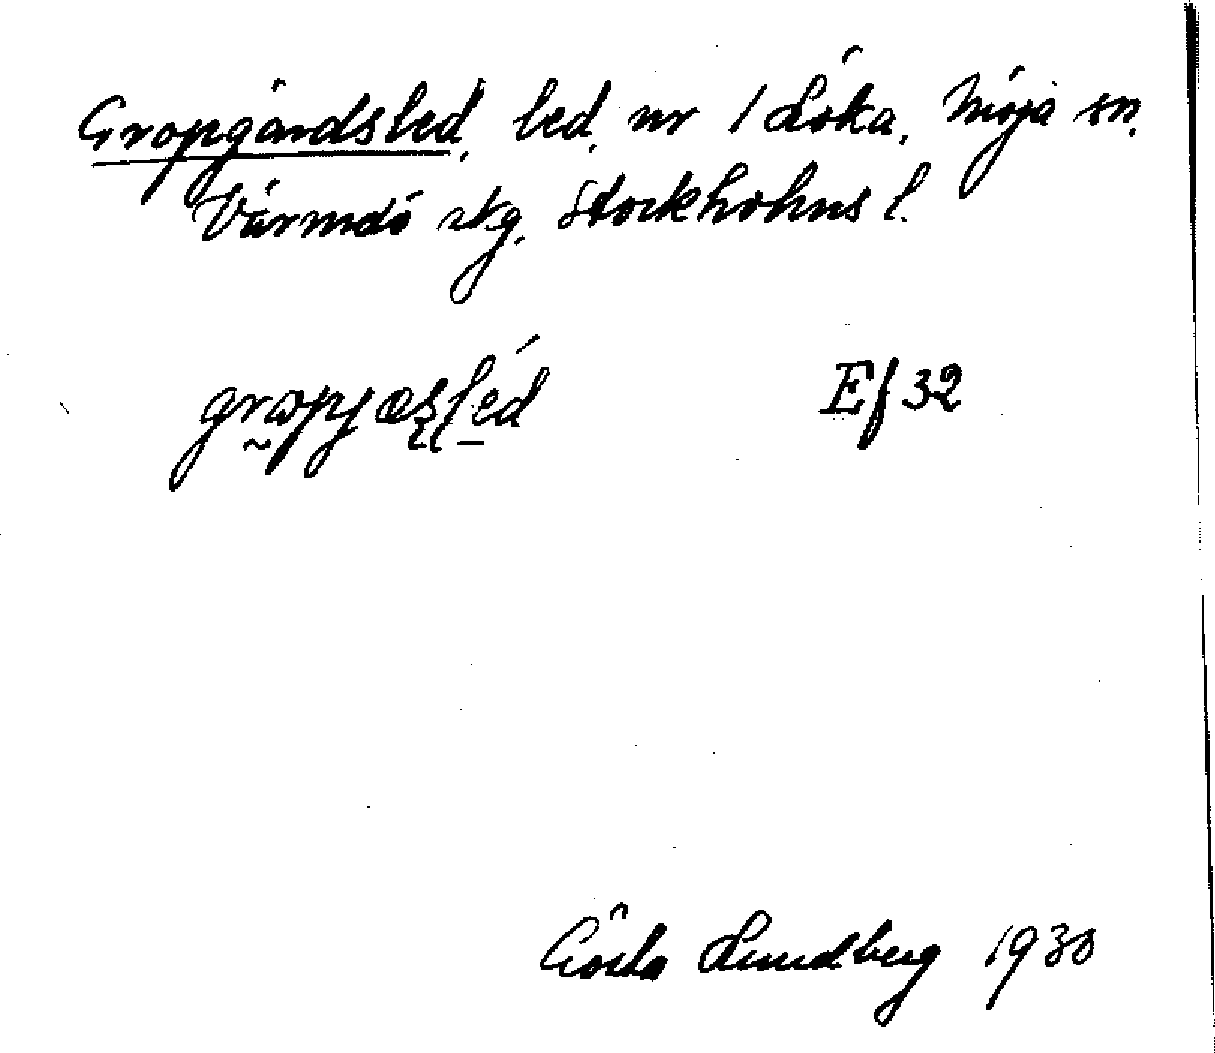 Gropgårdsled, led, nr 1 Löka, Möja sn,
Värmdö skg, Stockholms l.
Ef 32
Gösta Lundberg 1930